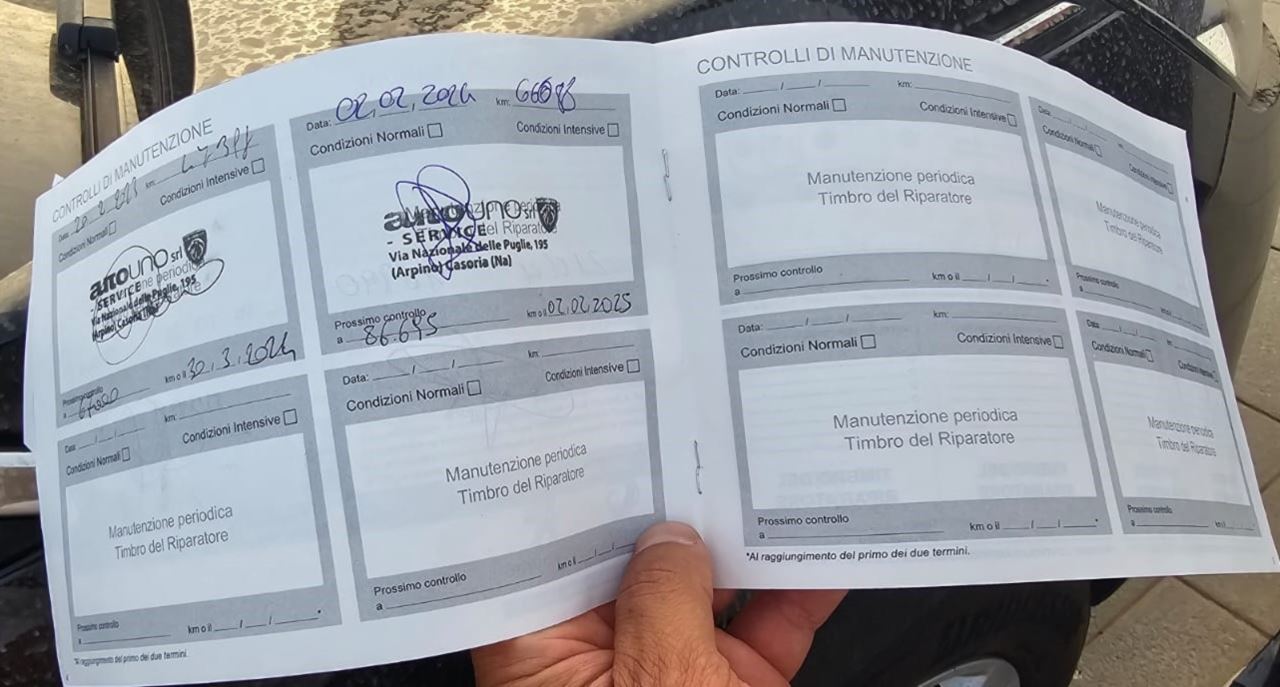 CONTROLLI DI MANUTENZIONE
Data: km:
Condizioni Normali Condizioni Intensive
autouno srl
- SERVICE
Via Nazionale delle Puglie, 195
(Arpino) Casoria (Na)
Prossimo controllo
a km o il 30.3.2024
Data: 02.02.2024 km:
Condizioni Normali Condizioni Intensive
autouno srl
- SERVICE
Via Nazionale delle Puglie, 195
(Arpino) Casoria (Na)
Prossimo controllo
a 86.695 km o il 02.02.2025
Data: / / km:
Condizioni Normali Condizioni Intensive
Manutenzione periodica
Timbro del Riparatore
Prossimo controllo
a km o il / / .*
*Al raggiungimento del primo dei due termini.
Data: / / km:
Condizioni Normali Condizioni Intensive
Manutenzione periodica
Timbro del Riparatore
Prossimo controllo
a km o il / /
CONTROLLI DI MANUTENZIONE
Data: / / km:
Condizioni Normali Condizioni Intensive
Manutenzione periodica
Timbro del Riparatore
Prossimo controllo
a km o il / / .*
Data: / / km:
Condizioni Normali Condizioni Intensive
Manutenzione periodica
Timbro del Riparatore
Prossimo controllo
a km o il
Data: / / km:
Condizioni Normali Condizioni Intensive
Manutenzione periodica
Timbro del Riparatore
Prossimo controllo
a km o il / / .*
*Al raggiungimento del primo dei due termini.
Data: / / km:
Condizioni Normali Condizioni Intensive
Manutenzione periodica
Timbro del Riparatore
Prossimo controllo
a km o il